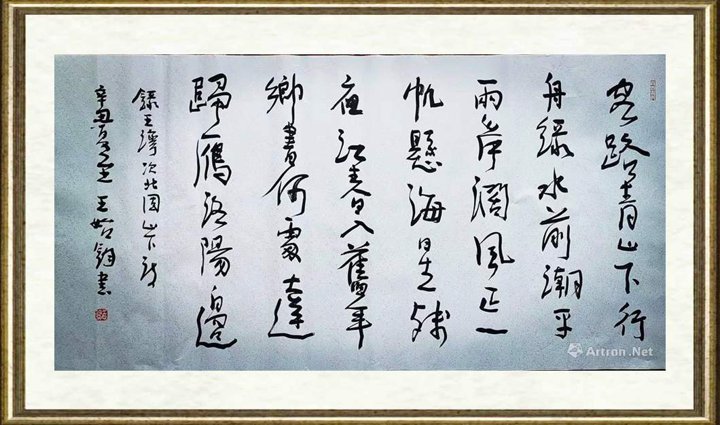 客路青山下行
舟綠水前潮平
兩岸闊風正一
帆懸海日生殘
夜江春入舊年
鄉書何處達
歸雁洛陽邊
錄王灣次北固山下詩
辛丑夏 王 書
Artron.Net